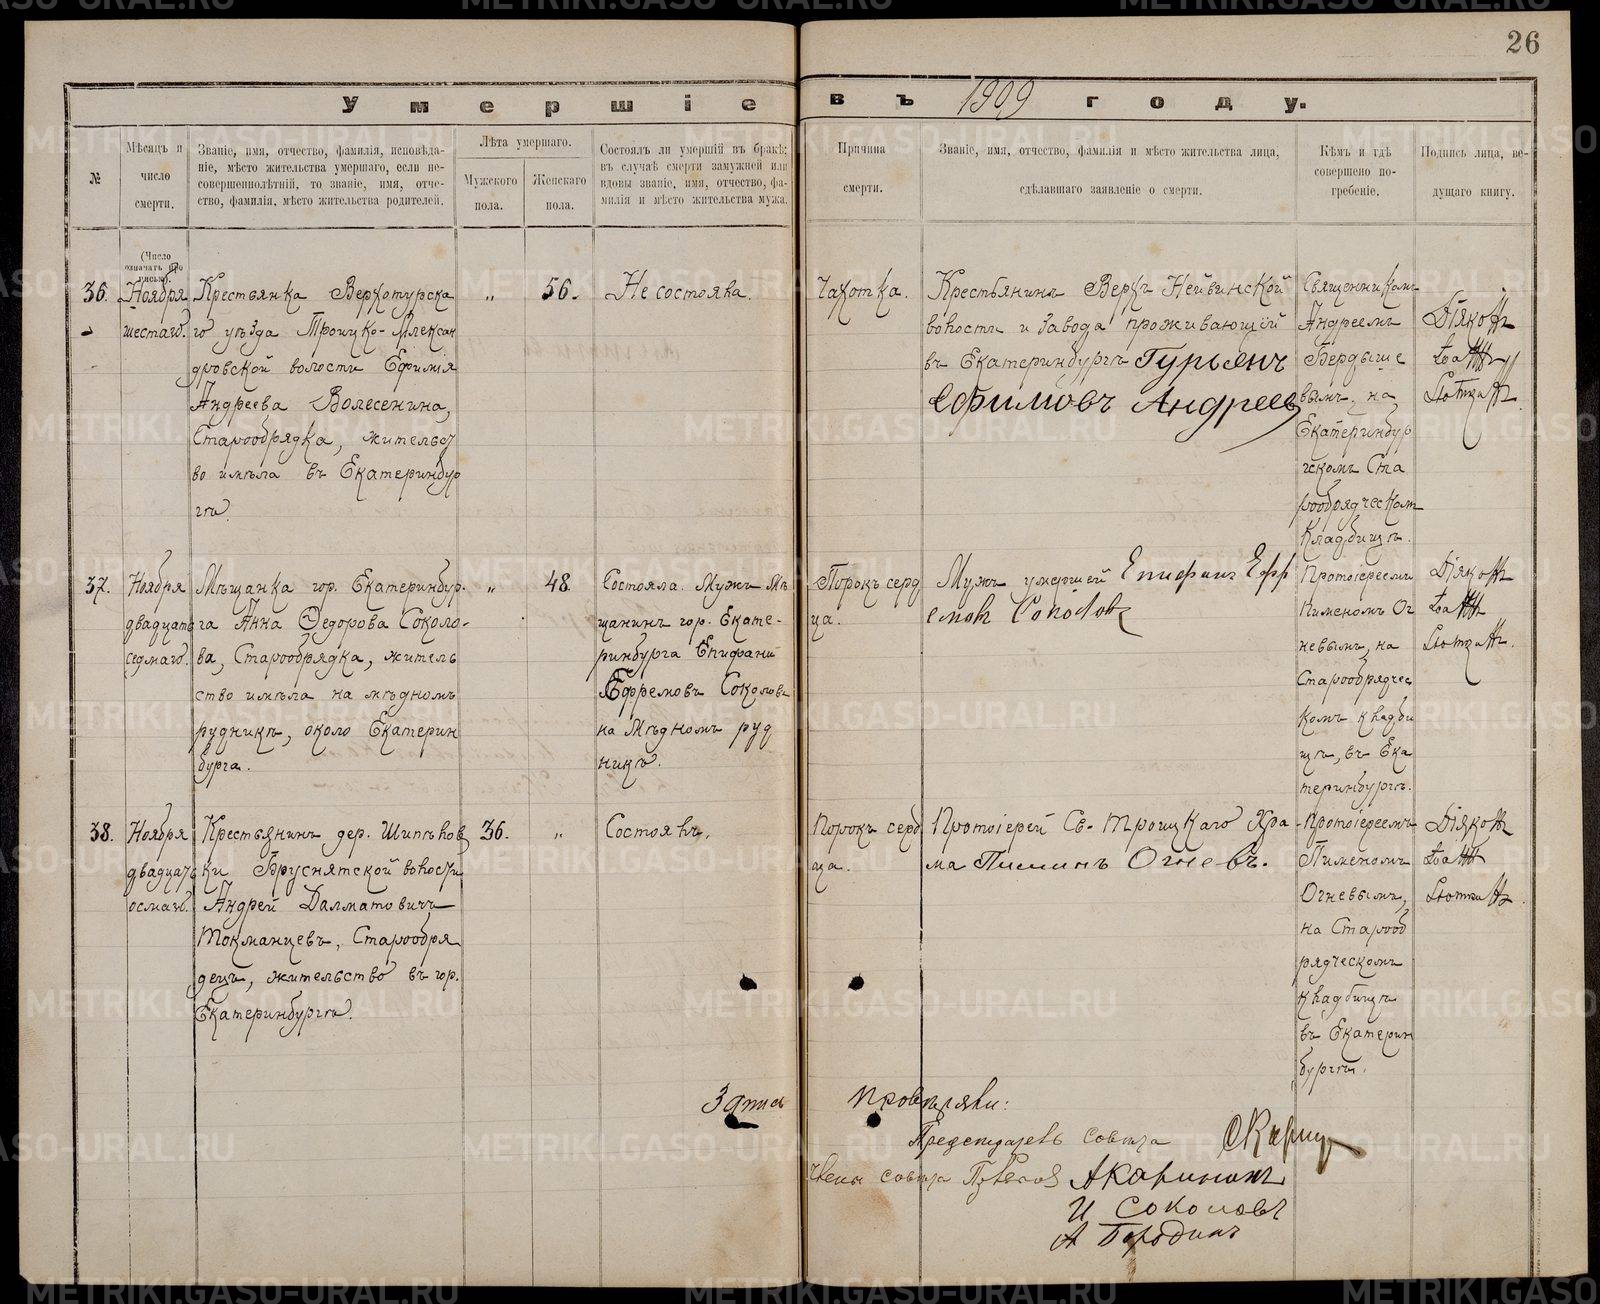 26
Умершіе
въ 1909 году.
№
Мѣсяцъ и
число
смерти.
(Число
означать про
писью).
Званіе, имя, отчество, фамилія, исповѣда-
ніе, мѣсто жительства умершаго, если не-
совершеннолѣтній, то званіе, имя, отче-
ство, фамилія, мѣсто жительства родителей.
Лѣта умершаго.
Мужского
пола.
Женскаго
пола.
Состоялъ ли умершій въ бракѣ;
въ случаѣ смерти замужней или
вдовы званіе, имя, отчество, фа-
милія и мѣсто жительства мужа.
Причина
смерти.
Званіе, имя, отчество, фамилія и мѣсто жительства лица,
сдѣлавшаго заявленіе о смерти.
Кѣмъ и гдѣ
совершено по-
гребеніе.
Подпись лица, ве-
дущаго книгу.
36.
Ноября
шестаго.
Крестьянка Верхотурска
го уѣзда Троицко-Алексан
дровской волости Ефимія
Андреева Волесенина,
Старообрядка, жительст
во имѣла въ Екатеринбур
гѣ.
„
56.
Не состояла.
Чахотка.
Крестьянинъ Верхъ Нейвинской
волости и завода проживающій
въ Екатеринбургѣ Гурьянъ
Ефимовъ Андреев
Священникомъ
Андреемъ
Бердыше
вымъ, на
Екатеринбур
гскомъ Ста
рообрядческомъ
Кладбищѣ.
Діяконъ
37.
Ноября
двадцать
седмаго.
Мѣщанка гор. Екатеринбур-
га Анна Ѳедорова Соколо-
ва, Старообрядка, житель
ство имѣла на мѣдномъ
рудникѣ, около Екатерин
бурга.
„
48
Состояла. Мужъ мѣ
щанинъ гор. Екате-
ринбурга Епифаній
Ефремовъ Соколовъ
на Мѣдномъ руд
никѣ.
Порокъ серд
ца.
Мужъ умершей Епифанъ Ефр
емовъ Соколовъ
Протоіереемъ
Пименомъ Ог
невымъ, на
Старообрядчес
комъ кладби
щѣ, въ Ека
теринбургѣ.
Діяконъ
38.
Ноября
двадцать
осмаго.
Крестьянинъ дер. Шипѣлов
ки Бруснятской волости
Андрей Далматовичъ
Токманцевъ, Старообря
децъ, жительство въ гор.
Екатеринбургѣ.
36.
„
Состоялъ.
Порокъ серд
ца.
Протоіерей Св-Троицкаго Хра
ма Пименъ Огневъ.
Протоіереемъ
Пименомъ
Огневымъ,
на Старооб
рядческомъ
кладбищѣ
въ Екатерин
бургѣ.
Діяконъ
Запись провѣряли:
Председатель совѣта
Члены совѣта
И Соколовъ
А Бородинъ